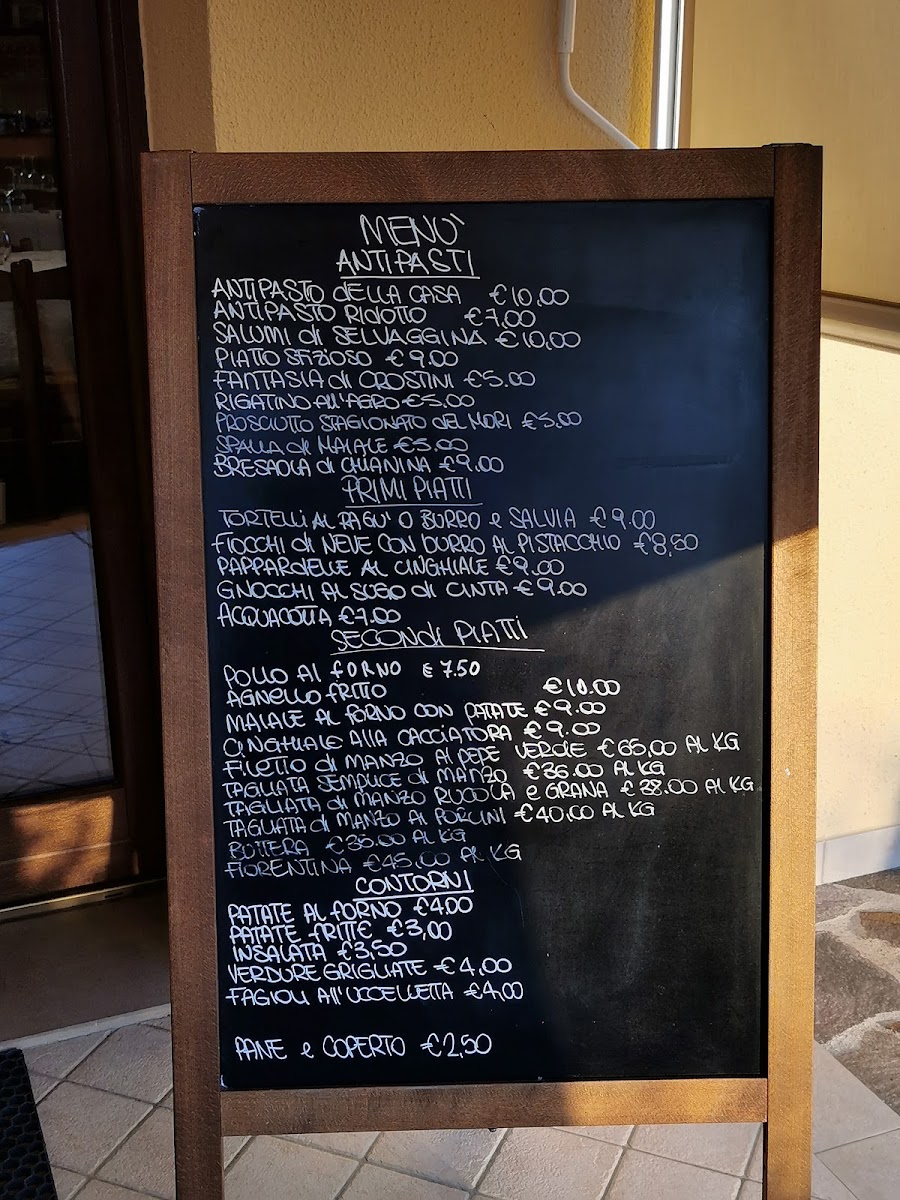 MENÙ
ANTIPASTI
ANTIPASTO DELLA CASA €10,00
ANTIPASTO RIDOTTO €7,00
SALUMI di SELVAGGINA €10,00
PIATTO SFIZIOSO €9.00
FANTASIA di CROSTINI €5.00
RIGATINO All'AGRO €5.00
PROSCIUTTO STAGIONATO DEL MORI €5,00
SPALLA di MAIALE €5.00
BRESAOLA di CHIANINA €9.00
PRIMI PIATTI
TORTELLI AL RAGU' O BURRO e SALVIA €9.00
FIOCCHI di NEVE CON BURRO AL PISTACCHIO €8,50
PAPPARDELLE AL CINGHIALE €9.00
GNOCCHI AL SUGO di CINTA €9.00
ACQUACOTTA €7.00
SECONDI PIATTI
POLLO Al FORNO €7.50
AGNELLO FRITTO €10.00
MAIALE AL FORNO CON PATATE €9.00
CINGHIALE ALLA CACCIATORA €9.00
FILETTO di MANZO Al PEPE VERDE €65,00 AL KG
TAGLIATA SEMPLICE di MANZO €36.00 AL KG
TAGLIATA di MANZO RUCOLA e GRANA €38.00 AL KG
TAGLIATA di MANZO Ai PORCINI €40,00 AL KG
BOTTERA €35.00 AL KG
FIORENTINA €45,00 AL KG
CONTORNI
PATATE AL FORNO €4.00
PATATE FRITTE €3,00
INSALATA €3,50
VERDURE GRIGLIATE €4,00
FAGIOLI All'UCCELLETTA €4,00
PANE e COPERTO €2,50